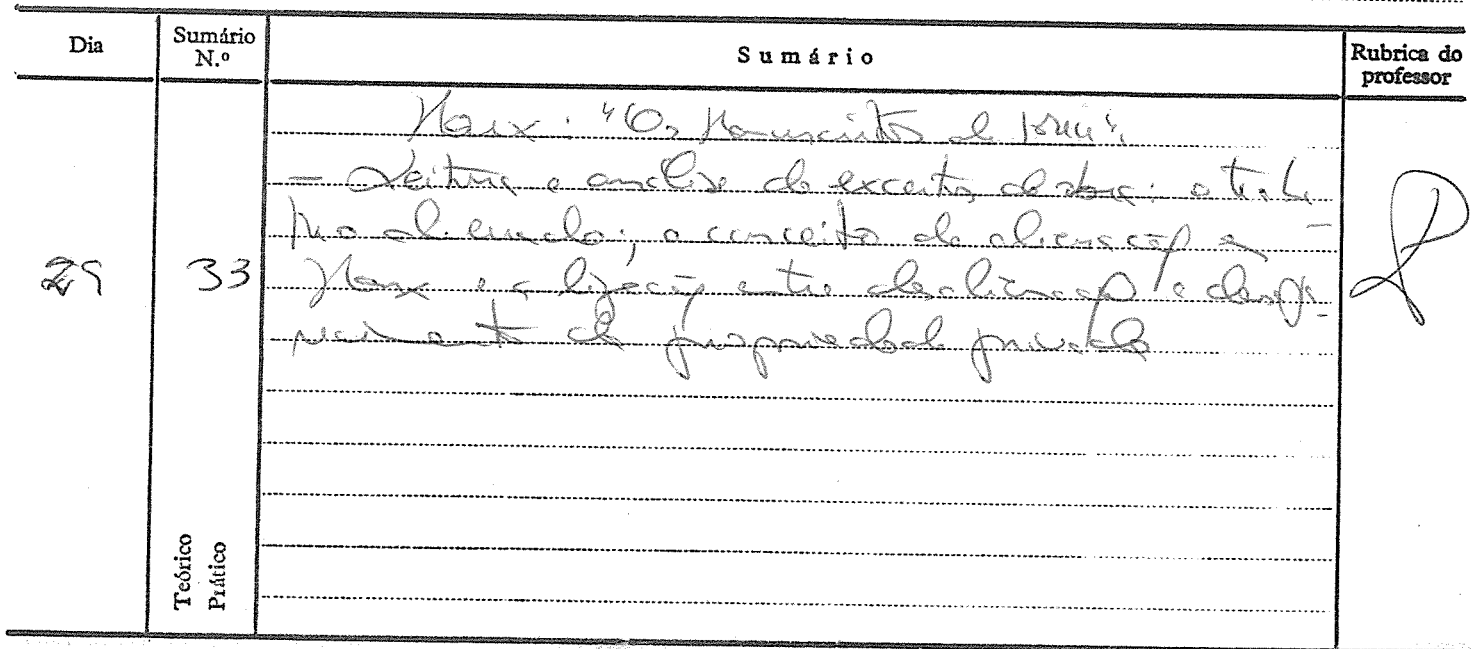 Dia Sumário N.º Sumário Rubrica do professor
Marx: "Os Manuscritos de 1844".
- Leitura e análise de excertos da obra: o traba
lho alienado; o conceito de alienação e
29 33 Marx e a ligação entre desalienação e desapa-
recimento da propriedade privada
Teórico
Prático